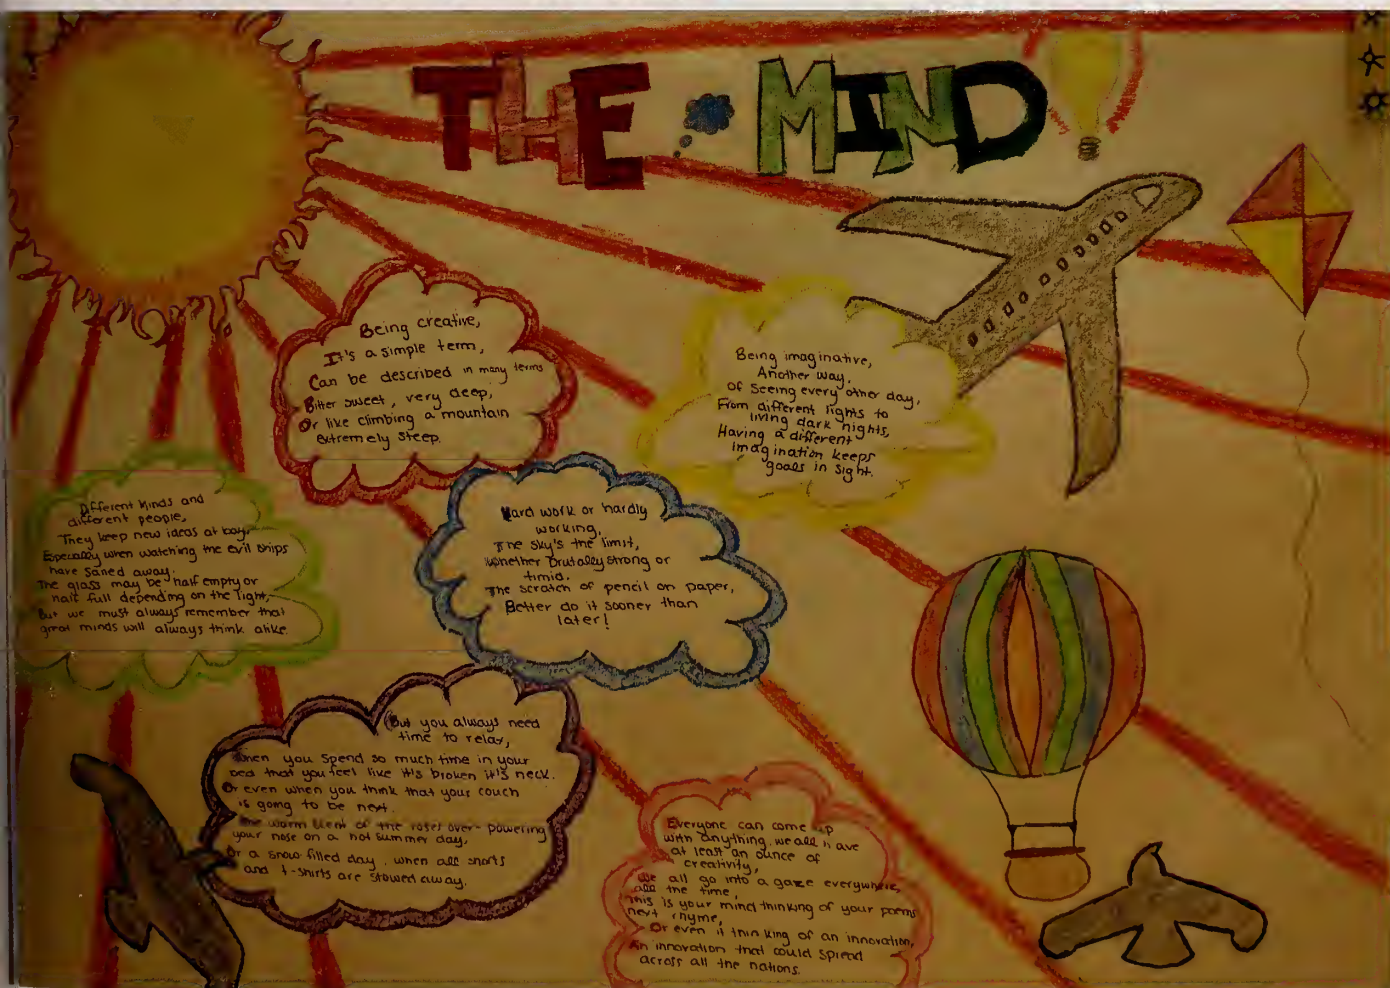 THE MIND
Being creative,
It's a simple term,
Can be described in many terms
Bitter sweet, very deep,
Or like climbing a mountain
extremely steep.
Being imaginative,
Another way,
Of seeing every other day,
From different lights to
living dark nights,
Having a different
imagination keeps
goals in sight.
Different kinds and
different people,
They keep new ideas at bay,
Especially when watching the evil ships
have sailed away.
The glass may be half empty or
half full depending on the light,
But we must always remember that
great minds will always think alike.
Hard work or hardly
working,
The sky's the limit,
Whether brutally strong or
timid.
The scratch of pencil on paper,
Better do it sooner than
later!
But you always need
time to relax,
When you spend so much time in your
bed that you feel like it's broken it's neck.
Or even when you think that your couch
is going to be next.
The warm of the roses over-powering
your nose on a hot summer day,
Or a snow filled day, when all shorts
and t-shirts are stowed away.
Everyone can come up
with anything, we all have
at least an ounce of
creativity,
We all go into a gaze everywhere,
all the time,
This is your mind thinking of your poems
next rhyme,
Or even it thinking of an innovation,
An innovation that could spread
across all the nations.